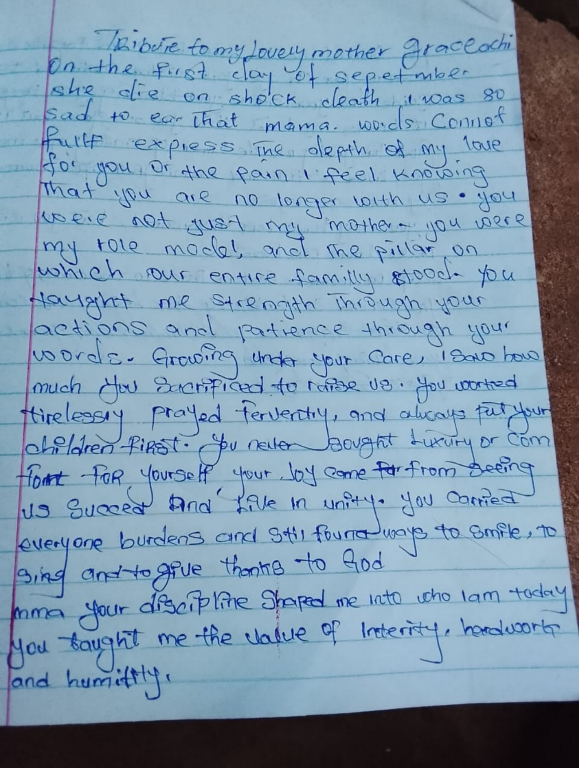 Tribute to my lovely mother graceochi
on the first day of sepetmber
she die on shock death i was so
sad to ear that mama. words Connot
fully express The depth of my love
for you, or the pain I feel knowing
That you are no longer with us. you
were not just my mother. you were
my role model, and The pillar on
which our entire family stood. You
taught me strength Through your
actions and patience through your
words. Growing under your care, I saw how
much you sacrificed to raise us. you worked
tirelessly prayed ferverntly, and always put your
children first. you never sought luxury or com
fort FOR yourself your Joy came from seeing
us succeed And live in unity. you carried
everyone burdens and still found ways to smile, to
sing and to give thanks to God
mma your discipline Shaped me into who I am today
you taught me the value of Interity, hardwork
and humitity.